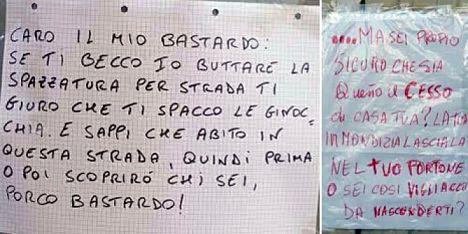 CARO IL MIO BASTARDO:
SE TI BECCO IO BUTTARE LA
SPAZZATURA PER STRADA TI
GIURO CHE TI SPACCO LE GINOC,
CHIA. E SAPPI CHE ABITO IN
QUESTA STRADA, QUINDI PRIMA
O POI SCOPRIRÓ CHI SEI,
PORCO BASTARDO!
....MA SEI PROPIO
SICURO CHE SIA
QUEllO il CESSO
di CASA TUA? LA TUA
IMMONDIZIA LASCIALA
NEL TUO PORTONE
O SEI COSI VIGLIACCO
DA NASCONDERTI?